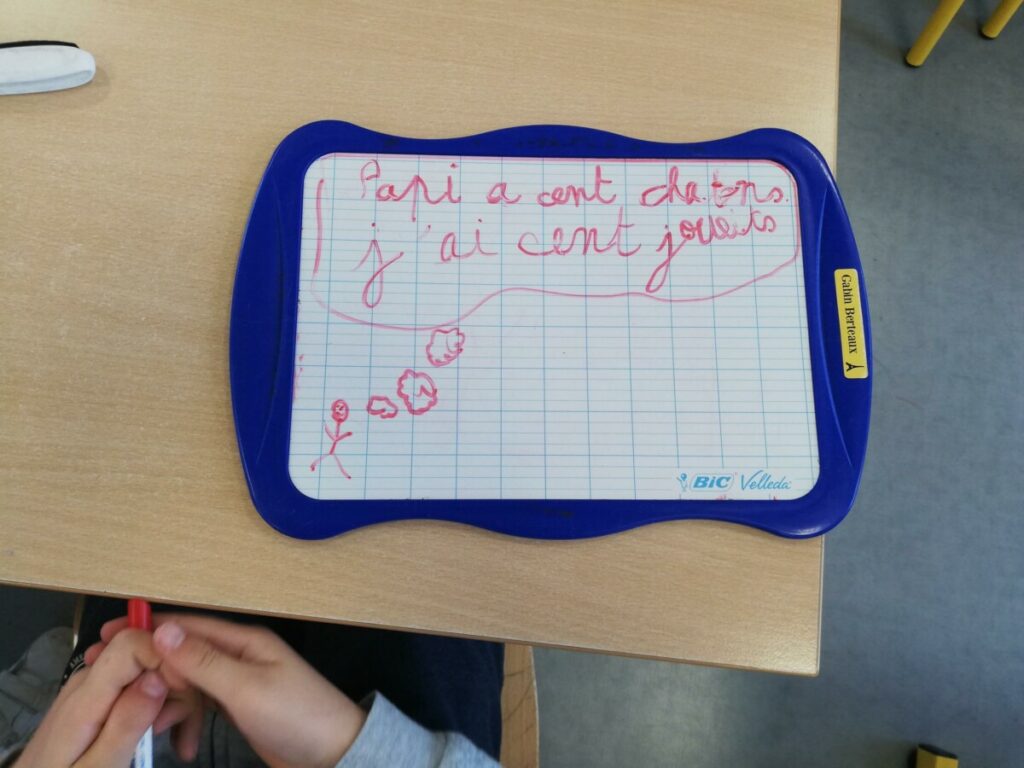 Papi a cent chatons.
j'ai cent joueits
Gabin Berteaux
BiC Velleda